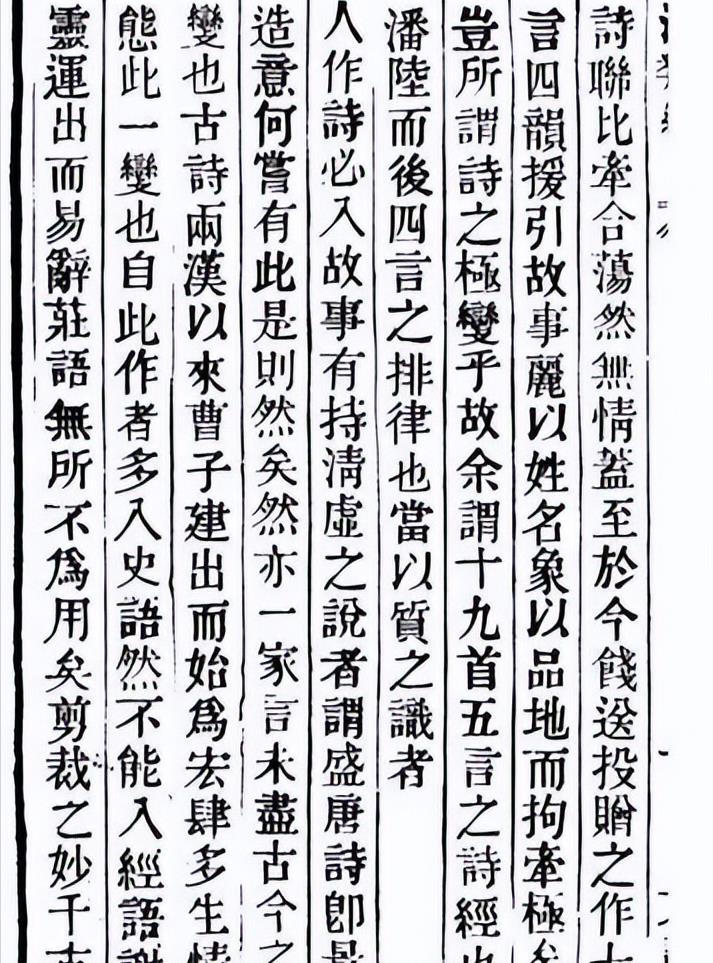 詩聯比牽合蕩然無情蓋至於今餞送投贈之作七
言四韻援引故事麗以姓名象以品地而拘牽極矣
豈所謂詩之極變乎故余謂十九首五言之詩經也
潘陸而後四言之排律也當以質之識者
人作詩必入故事有持清虛之說者謂盛唐詩卽景
造意何嘗有此是則然矣然亦一家言未盡古今之
變也古詩兩漢以來曹子建出而始爲宏肆多生情
態此一變也自此作者多入史語然不能入經語謝
靈運出而易辭莊語無所不爲用矣剪裁之妙千古